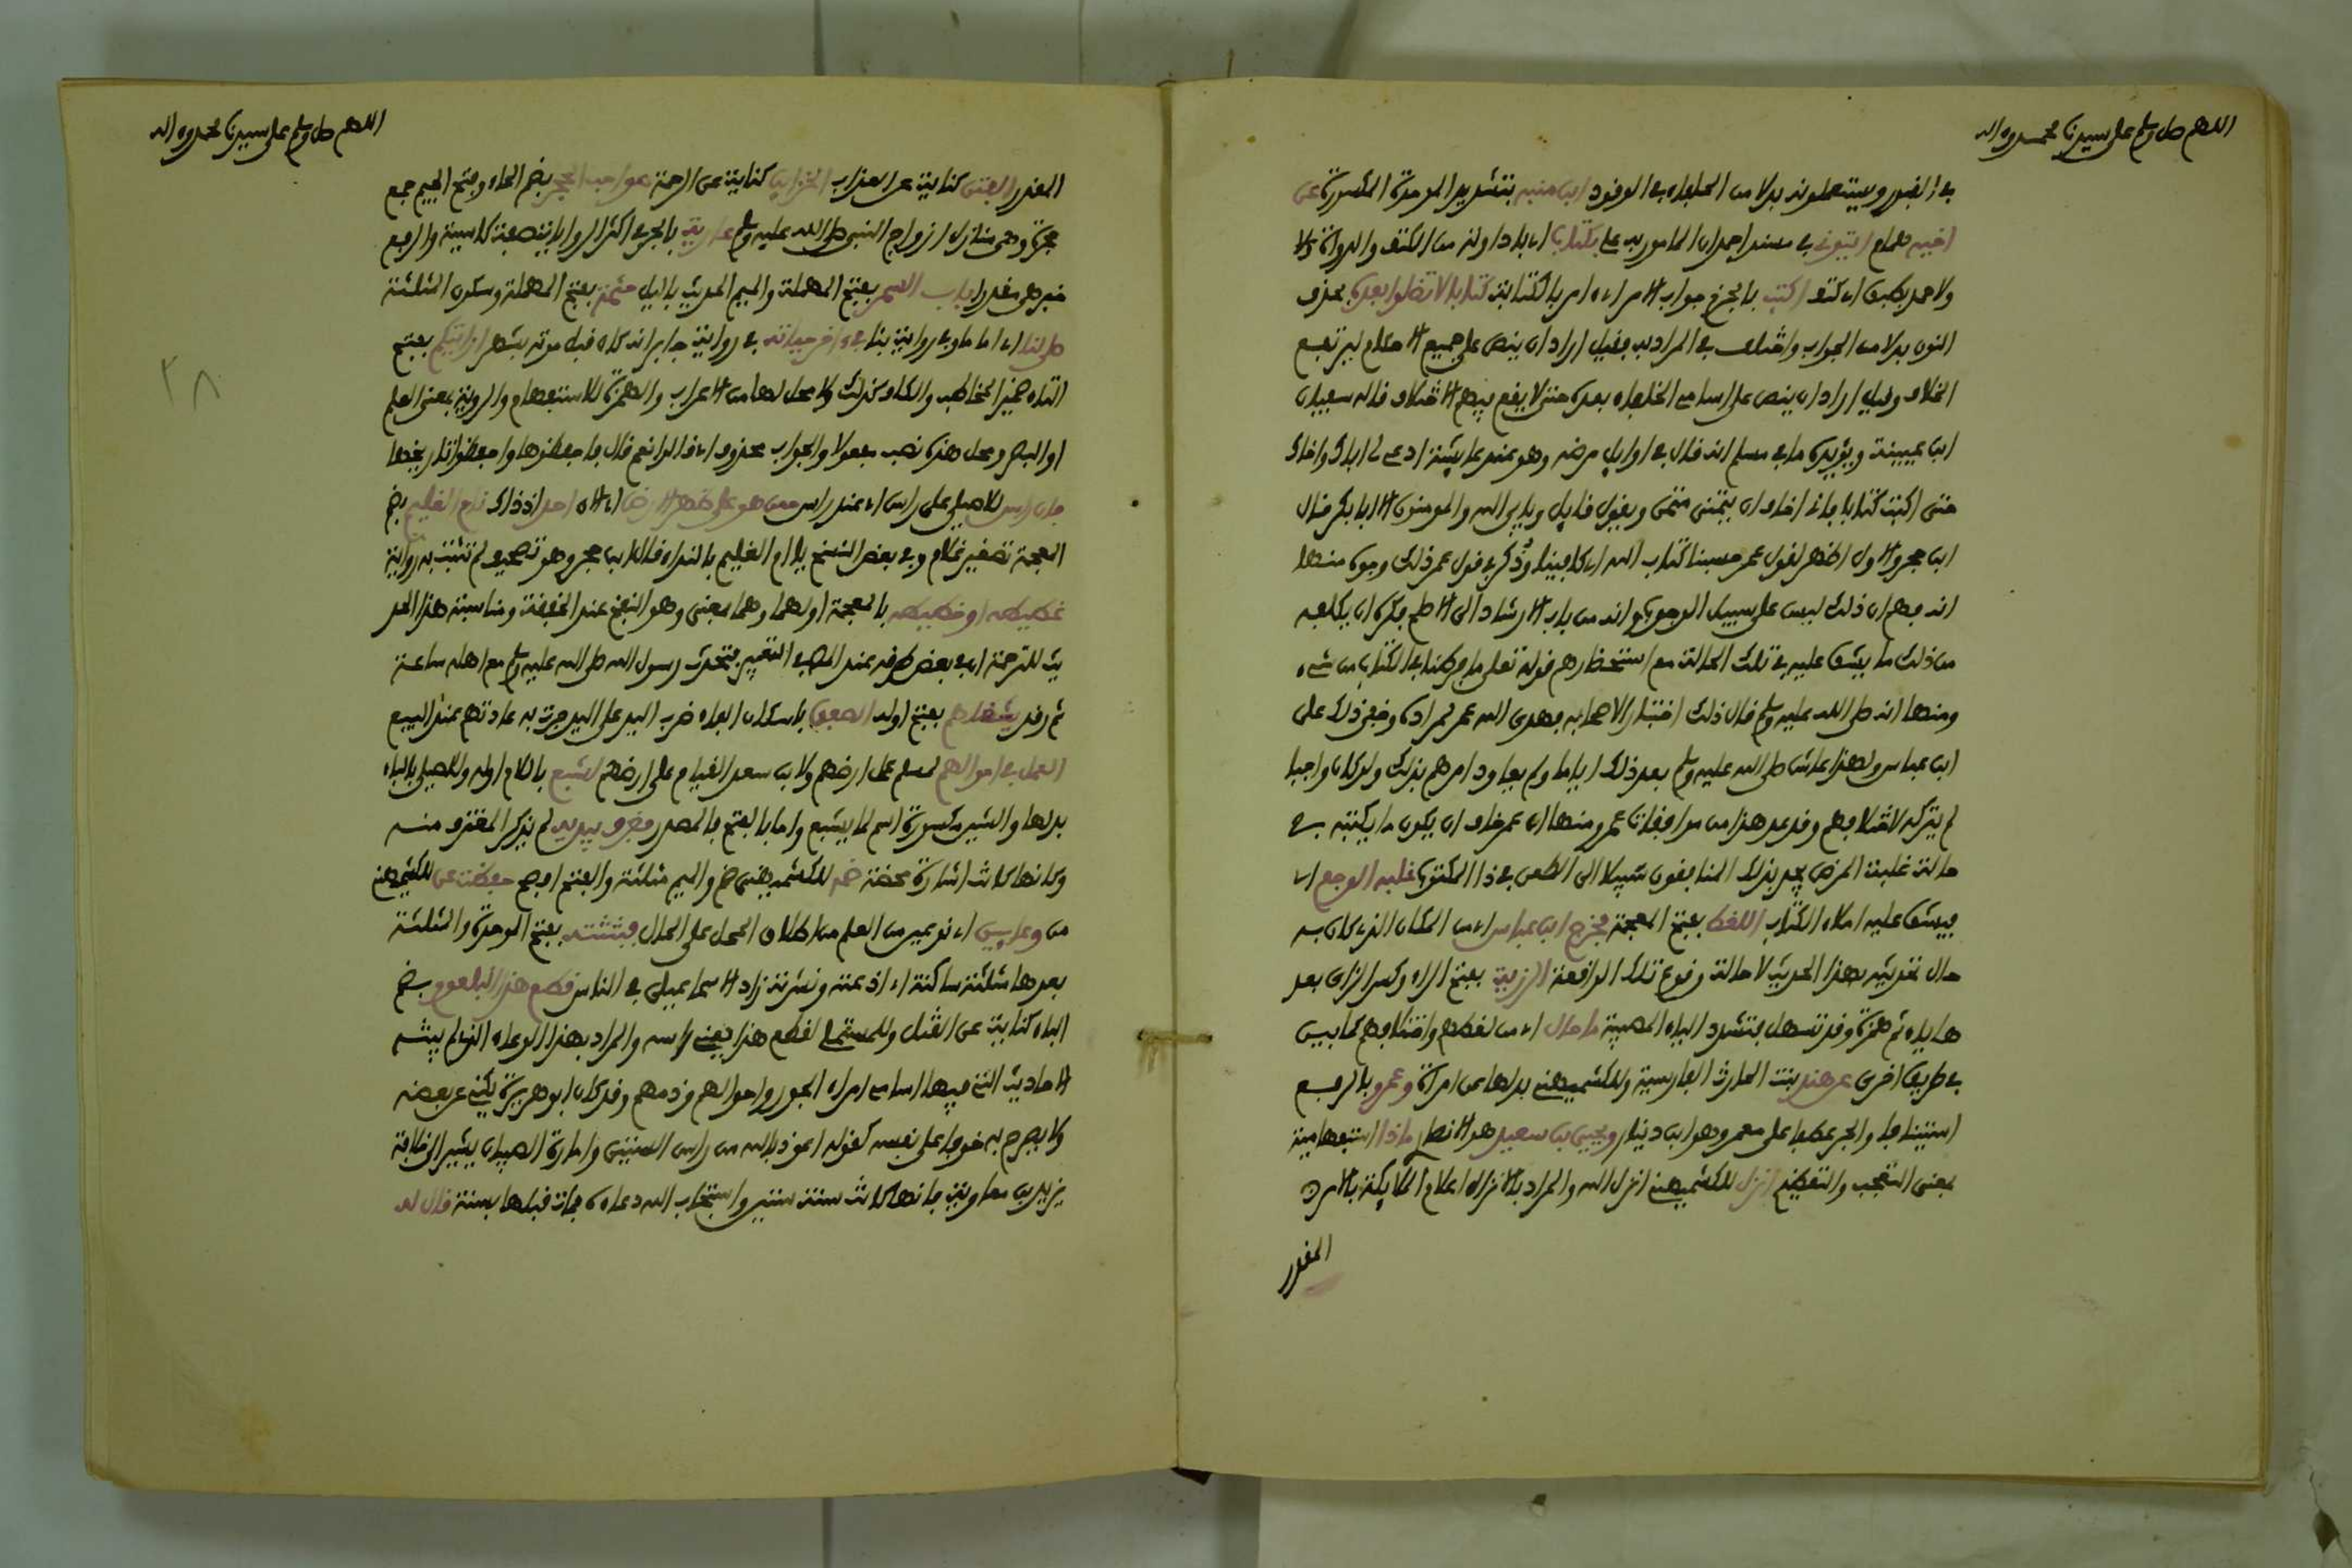 اللهم صل وسلم على سيدنا محمد وءاله
في القبور ويستعملونه بدلا من الحلفاء في الوقود ابن منبه بتشديد الموحدة المكسورة عن
اخيه همام ايتوني في مسند احمد ان المامور به علي بكتاب اي باداوته من الكتف والدواة
ولاحمد بطبق اي كتف اكتب بالجزم جواب الامر اي ءامر بالكتابة كتابا لا تضلوا بعده بحذف
النون بدلا من الجواب واختلف في المراد به فقيل اراد ان ينص على جميع الاحكام ليرتفع
الخلاف وقيل اراد ان ينص على اسامي الخلفاء بعده حتى لا يقع بينهم اختلاف قاله سفيان
ابن عيينة ويؤيده ما في مسلم انه قال في اوايل مرضه وهو عند عايشة ادعي لي اباك واخاك
حتى اكتب كتابا فاني اخاف ان يتمنى متمن ويقول قايل ويابى الله والمومنون الا ابا بكر قال
ابن حجر والاول اظهر لقول عمر حسبنا كتاب الله اي كافينا وذكر في قول عمر ذلك وجوه منها
انه فهم ان ذلك ليس على سبيل الوجوب وانه من باب الارشاد الى الاصلح فكره ان يكلفه
من ذلك ما يشق عليه في تلك الحالة مع استحضارهم قوله تعالى ما فرطنا في الكتاب من شيء
ومنها انه صلى الله عليه وسلم قال ذلك اختبارا لاصحابه فهدى الله عمر لمراده وخفي ذلك على
ابن عباس ولهذا عاش صلى الله عليه وسلم بعد ذلك اياما ولم يعاود امرهم بذلك ولو كان واجبا
لم يتركه لاختلافهم وقد عد هذا من موافقات عمر ومنها ان عمر خاف ان يكون ما يكتبه في
حالة غلبة المرض يجد بذلك المنافقون سبيلا الى الطعن في ذا المكتوب غلبه الوجع اي
فيشق عليه املاء الكتاب اللغط بفتح المعجمة فخرج ابن عباس اي من المكان الذي كان به
حال تحديثه بهذا الحديث لا حالة وقوع تلك الواقعة الرزية بفتح الراء وكسر الزاي بعد
ها ياء ثم همزة وقد تسهل بتشدد الياء المصيبة ما حال اي من لغطهم واختلافهم كما بين
في طريق اخرى عن هند بنت الحارث الفارسية وللكشميهني بدلها عن امراة وعمرو بالرفع
استينافا والجر عطفا على معمر وهو ابن دينار ويحيى بن سعيد هو الانصاري ماذا استفهامية
بمعنى التعجب والتعظيم انزل للكشميهني انزل الله والمراد بالانزال اعلام الملايكة بالامر
المقدور
اللهم صل وسلم على سيدنا محمد وءاله
المقدور الفتن كناية عن العذاب الخزاين كناية عن الرحمة صواحب الحجر بضم الحاء وفتح الجيم جمع
حجرة وهي منازل ازواج النبي صلى الله عليه وسلم عارية بالجر في اكثر الروايات صفة كاسية والرفع
خبر هي مقدرا باب السمر بفتح المهملة والميم الحديث بالليل حثمة بفتح المهملة وسكون المثلثة
صلى لنا اي اماما وفي رواية بنا في ءاخر حياته في رواية جابر انه كان قبل موته بشهر ارايتكم بفتح
التاء ضمير المخاطب والكاف كذلك ولا محل لها من الاعراب والهمزة للاستفهام والروية بمعنى العلم
او البصر ومحل هذه نصب مفعولا والجواب محذوف اي قالوا نعم قال فاحفظوها واحفظوا تاريخها
فان راس للاصيلي على راس اي عند راس ممن هو على ظهر الارض اي الان احد اذ ذاك نام الغليم بضم
المعجمة تصغير غلام وفي بعض النسخ يا ام الغليم بالنداء قال ابن حجر وهو تصحيف لم تثبت به رواية
غطيطه او خطيطه بالمعجمة اولهما وهما بمعنى وهو النفخ عند الخفقة ومناسبة هذا الحد
يث للترجمة ان في بعض طرقه عند المص في التفسير فتحدث رسول الله صلى الله عليه وسلم مع اهله ساعة
ثم رقد يشغلهم بفتح اوله الصفق باسكان الفاء ضرب اليد على اليد جرت به عادتهم عند البيع
العمل في اموالهم لمسلم عمل ارضهم ولابن سعد القيام على ارضهم لشبع باللام اوله وللاصيلي بالباء
بدلها والشين مكسورة اسم لما يشبع واما بالفتح فالمصدر فغرف بيديه لم يذكر المغترف منه
وكانها كانت اشارة محضة ضم للكشميهني ضمه والميم مثلثة والفتح افصح حفظت عن للكشميهني
من وعايين اي نوعين من العلم من اطلاق المحل على الحال فبثثته بفتح الموحدة والمثلثة
بعدها مثلثة ساكنة اي اذعته ونشرته زاد الاسماعيلي في الناس قطع هذا البلعوم بضم
الباء كناية عن القتل وللمستملي لقطع هذا يعني راسه والمراد بهذا الوعاء الذي لم يبثه
الاحاديث التي فيها اسامي امراء الجور واحوالهم وذمهم وقد كان ابو هريرة يكني عن بعضه
ولا يصرح به خوفا على نفسه كقوله اعوذ بالله من راس الستين وامارة الصبيان يشير الى خلافة
يزيد بن معاوية فانها كانت سنة ستين واستجاب الله دعاءه فمات قبلها بسنة قال له
٢٨